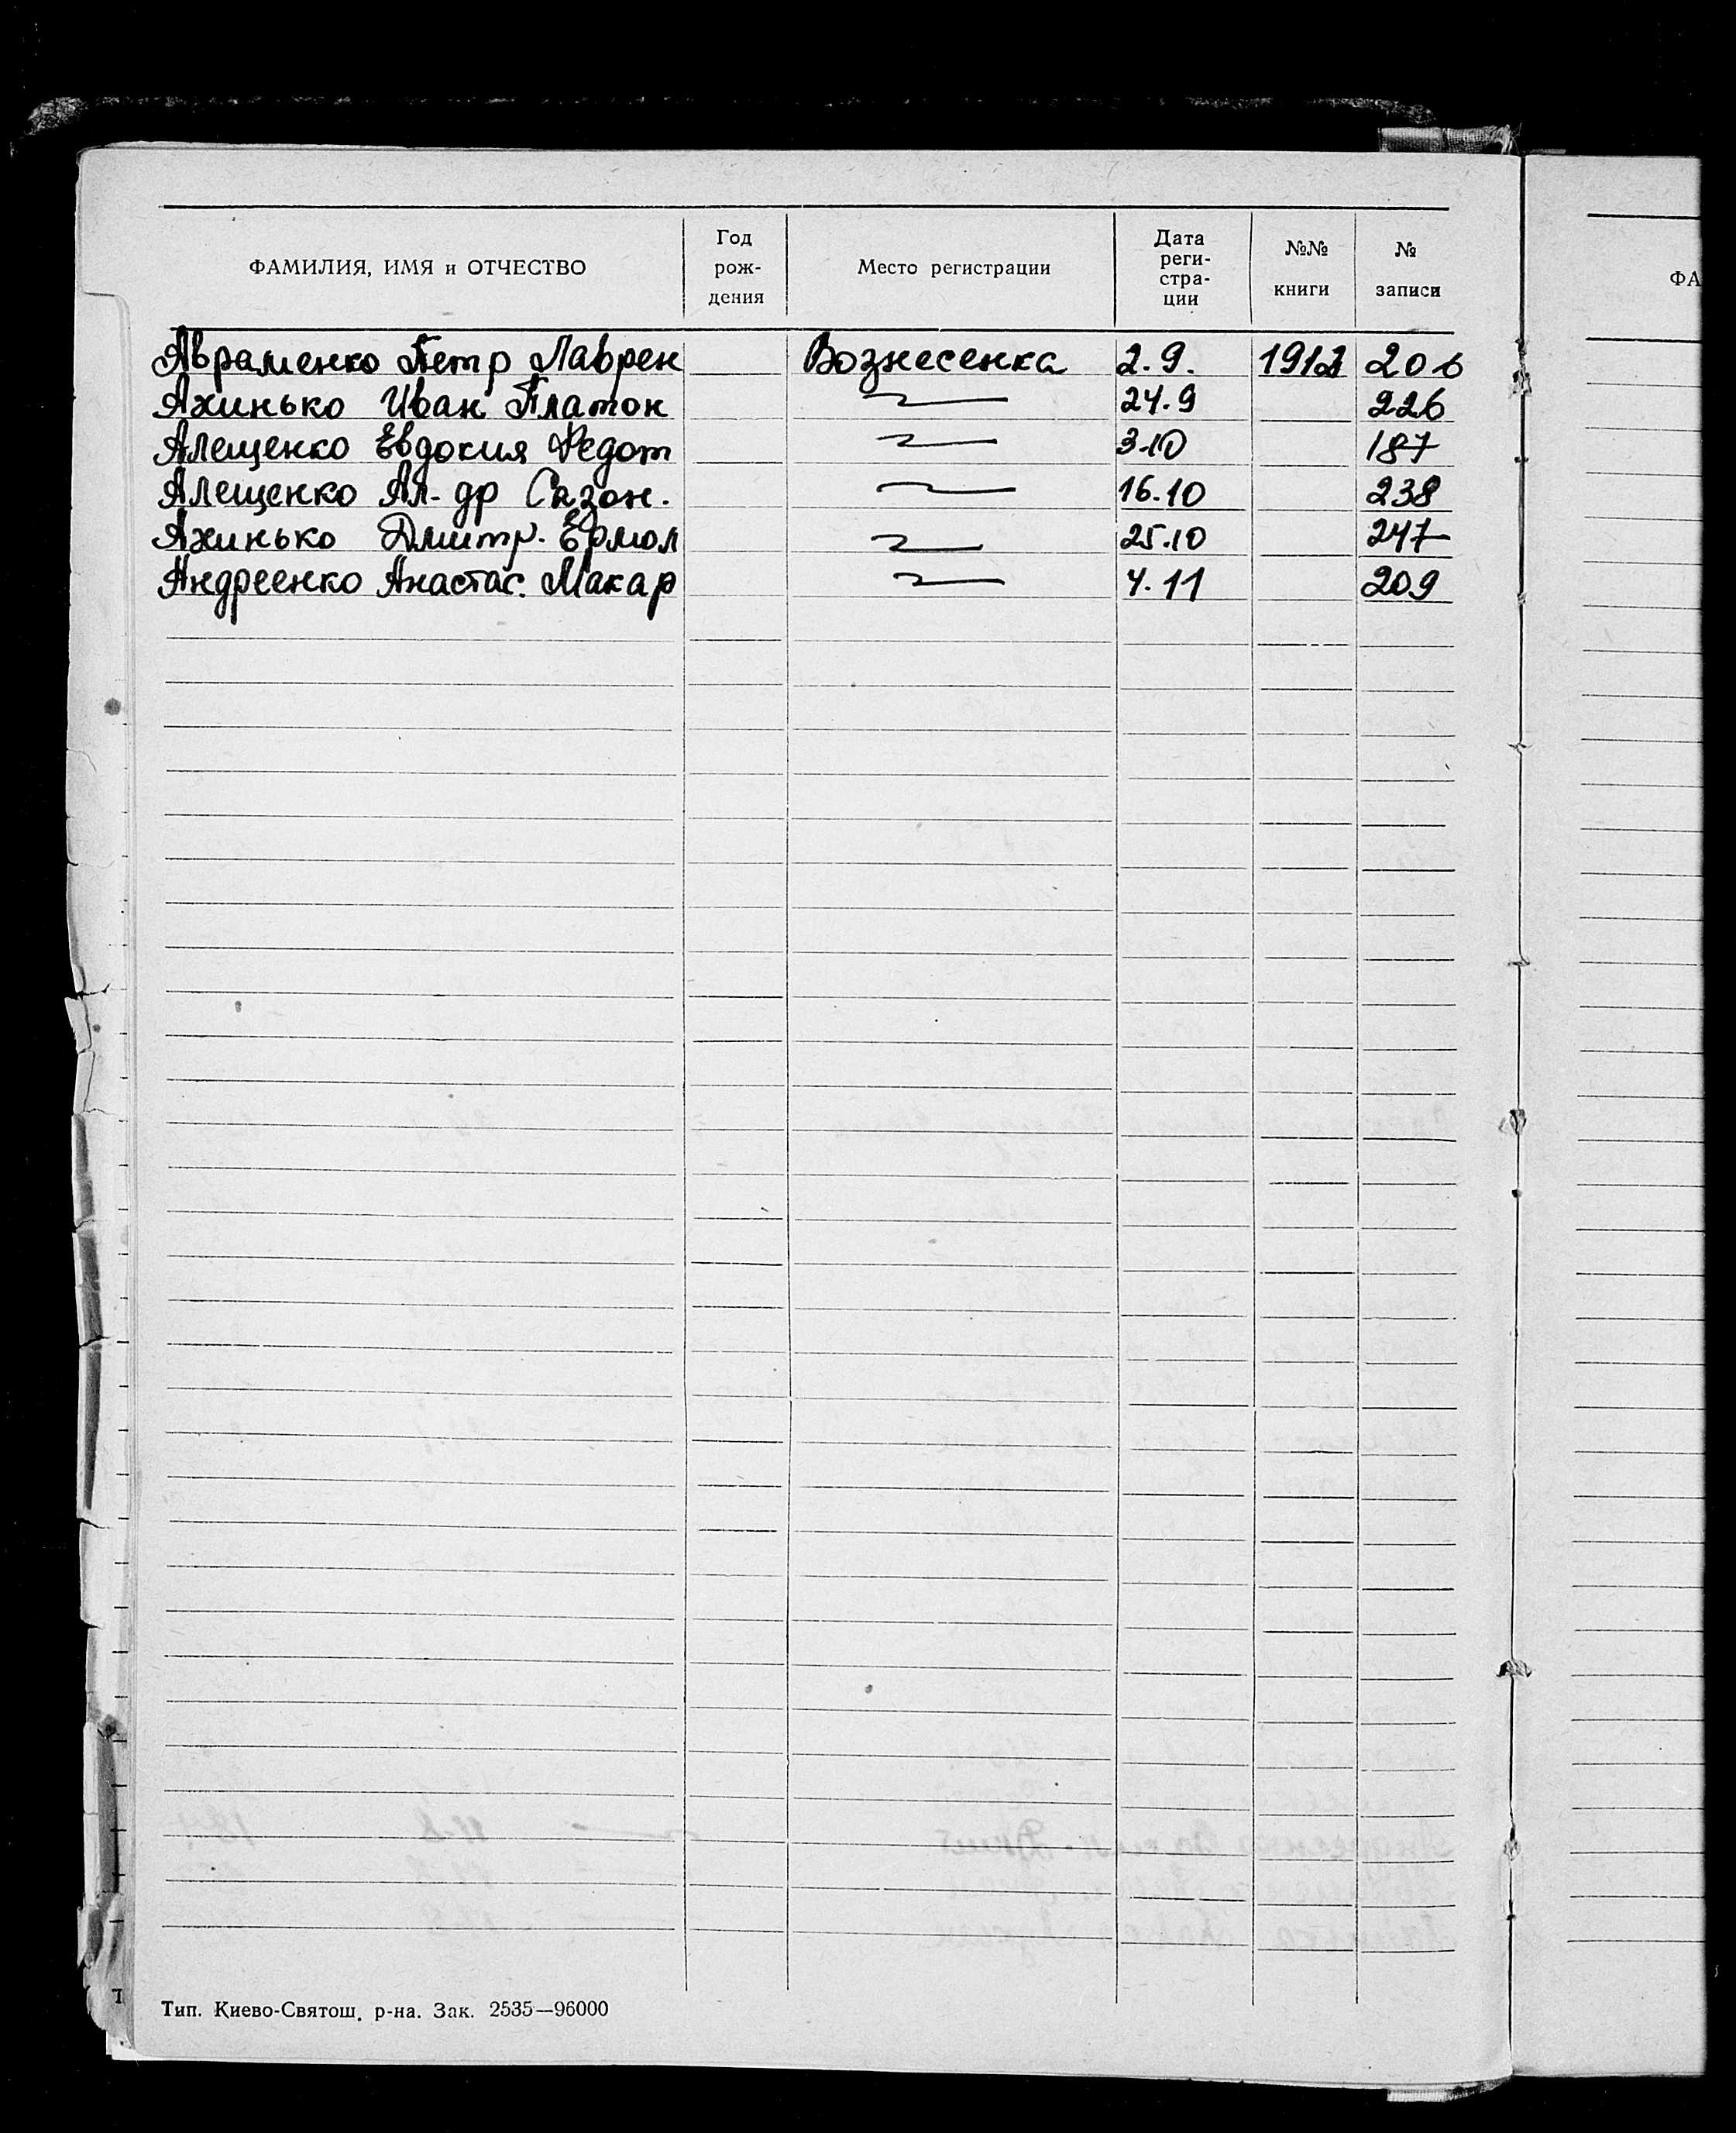 ФАМИЛИЯ, ИМЯ и ОТЧЕСТВО Год рож- дения Место регистрации Дата реги- стра- ции №№ книги № записи
ФА
Авраменко Петр Лаврен Вознесенка 2.9. 1912 206
Ахинько Иван Платон 24.9 226
Алещенко Евдокия Федот 3.10 187
Алещенко Ал-др Сазон. 16.10 238
Ахинько Дмитр. Ермол 25.10 247
Андреенко Анастас. Макар 4.11 209
Тип. Киево-Святош. р-на. Зак. 2535—96000